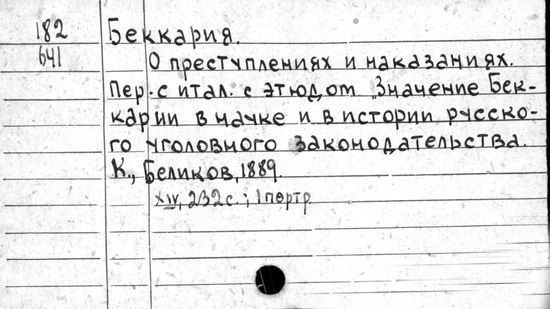 182
641
Беккария.
О преступлениях и наказаниях.
Пер. с итал. с этюдом "Значение Бек-
карии в науке и в истории русско-
го уголовного законодательства.
К., Беликов, 1889.
XIV, 232 с.; 1 портр.